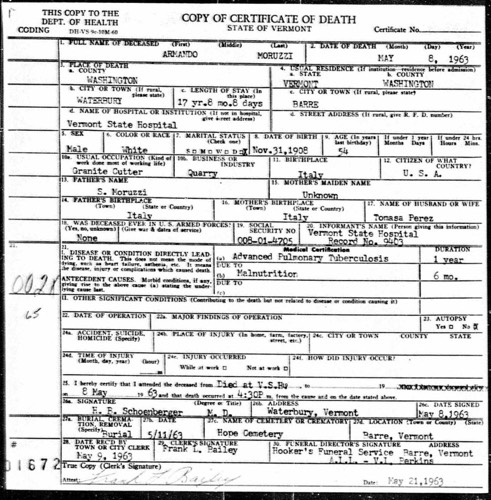 THIS COPY TO COPY OF CERTIFICATE OF DEATH
DEPT. OF HEALTH STATE OF VERMONT
CODING DH-VS 9c-10M-60 Certificate No.
1. FULL NAME OF DECEASED (First) (Middle) (Last) 2. DATE OF DEATH (Month) (Day) (Year)
ARMANDO MORUZZI MAY 8, 1963
3. PLACE OF DEATH 4. USUAL RESIDENCE (If institution residence before admission)
a. COUNTY a. STATE b. COUNTY
WASHINGTON VERMONT WASHINGTON
b. CITY OR TOWN (If rural, please state) c. LENGTH OF STAY (In this place) c. CITY OR TOWN (If rural, please state)
WATERBURY 17 yr.8 mo.8 days BARRE
d. NAME OF HOSPITAL OR INSTITUTION (If not in hospital, give street address) d. STREET ADDRESS (If rural, give R. F. D. number)
Vermont State Hospital
5. SEX 6. COLOR OR RACE 7. MARITAL STATUS (Check one) 8. DATE OF BIRTH 9. AGE (In years last birthday) If under 1 year Months Days If under 24 hrs. Hours Min.
Male White S M W D Nov.31,1908 54
10a. USUAL OCCUPATION (Kind of work done most of working life) 10b. BUSINESS OR INDUSTRY 11. BIRTHPLACE 12. CITIZEN OF WHAT COUNTRY?
Granite Cutter Quarry Italy U. S. A.
13. FATHER'S NAME 15. MOTHER'S MAIDEN NAME
S. Moruzzi Unknown
14. FATHER'S BIRTHPLACE (Town) (State or Country) 16. MOTHER'S BIRTHPLACE (Town) (State or Country) 17. NAME OF HUSBAND OR WIFE
Italy Italy Tomasa Perez
18. WAS DECEASED EVER IN U. S. ARMED FORCES? (Yes, no, unknown) (Give war & dates of service) 19. SOCIAL SECURITY NO 20. INFORMANT'S NAME (Person giving this information)
None 008-01-4705 Vermont State Hospital Record No. 9403
21. Medical Certification DURATION
I. DISEASE OR CONDITION DIRECTLY LEADING TO DEATH. (This does not mean the mode of dying, such as heart failure, asthma, etc. It means the disease, injury or complications which caused death. (a) Advanced Pulmonary Tuberculosis 1 year
DUE TO
ANTECEDENT CAUSES. Morbid conditions, if any, giving rise to the above cause (a) stating the underlying cause last. (b) Malnutrition 6 mo.
DUE TO
(c)
65
II. OTHER SIGNIFICANT CONDITIONS (Contributing to the death but not related to disease or condition causing it)
22. DATE OF OPERATION 22a. MAJOR FINDINGS OF OPERATION 23. AUTOPSY
Yes No
24a. ACCIDENT, SUICIDE, HOMICIDE (Specify) 24b. PLACE OF INJURY (In home, farm, factory, street, etc.) 24c. CITY OR TOWN COUNTY STATE
24d. TIME OF INJURY (Month, day, year) (hour) 24e. INJURY OCCURRED 24f. HOW DID INJURY OCCUR?
While at work Not at work
25. I hereby certify that I attended the deceased from Died at V.S.H. to
on 8 May 1963 and that death occurred at 4:30P m., from the cause and on the date stated above.
26a. SIGNATURE (Degree or Title) 26b. ADDRESS 26c. DATE SIGNED
H. B. Schoenberger M. D. Waterbury, Vermont May 8,1963
27a. BURIAL, CREMATION, REMOVAL (Specify) 27b. DATE 27c. NAME OF CEMETERY OR CREMATORY 27d. LOCATION (Town or County) (State)
Burial 5/11/63 Hope Cemetery Barre, Vermont
28. DATE REC'D BY TOWN OR CITY CLERK 29. CLERK'S SIGNATURE 30. FUNERAL DIRECTOR'S SIGNATURE ADDRESS
May 9, 1963 Frank L. Bailey Hooker's Funeral Service Barre, Vermont
Perkins
01672
True Copy (Clerk's Signature) DATE
Attest: Frank L. Bailey May 21,1963